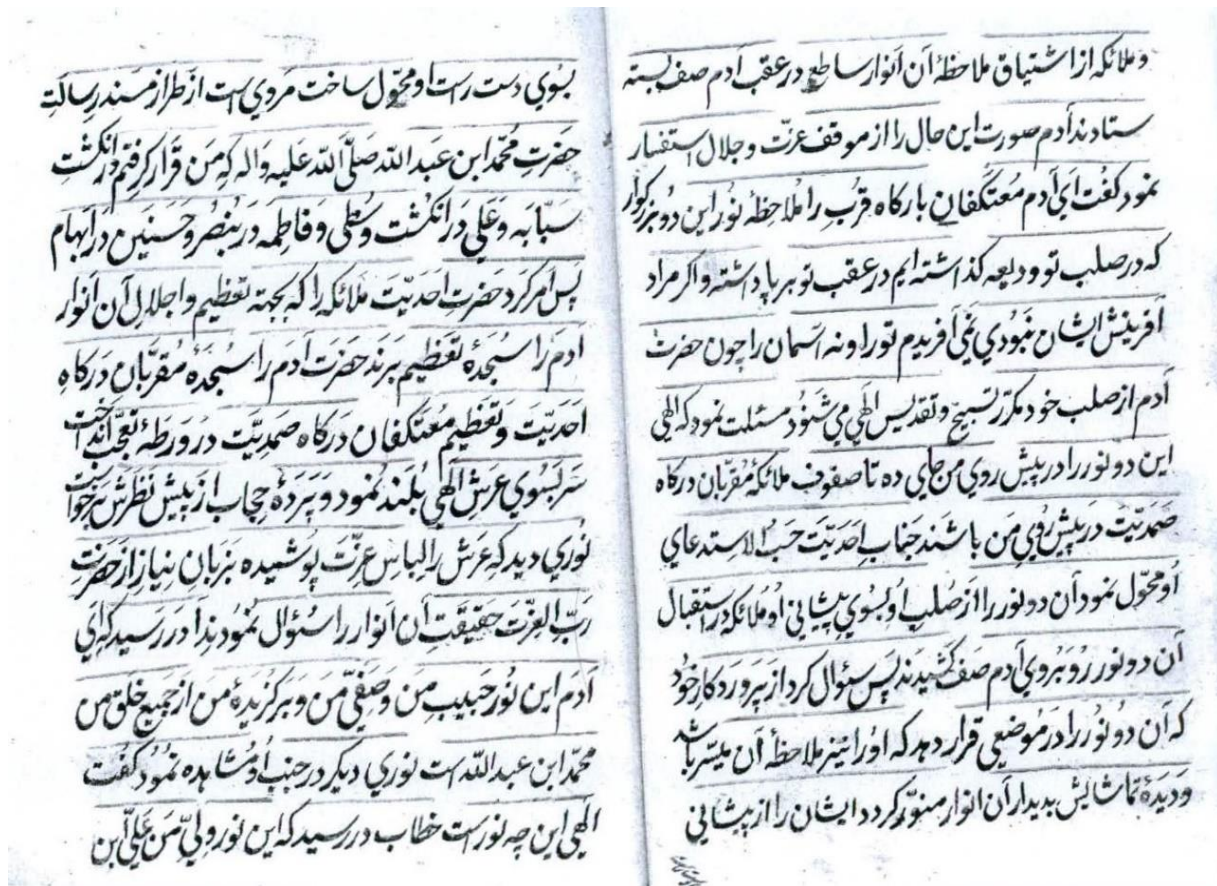 و ملائکه از اشتیاق ملاحظهٔ آن انوار ساطع در عقب آدم صف بسته
ستادند آدم صورت این حال را از موقف عزّت و جلال استفسار
نمود کفت ای آدم مُعتکفان بارکاه قرب را ملاحظهٔ نور این دو بزرکوار
که در صلب تو ودیعه کذاشته ایم در عقب تو بر پا داشته و اکر مراد
آفرینش ایشان نبودی نمی آفریدم تو را و نه آسمان را چون حضرت
آدم از صلب خود مکرّر تسبیح و تقدیس الهی می شنود مسئلت نمود که الهی
این دو نور را در پیش روی من جای ده تا صفوف ملائکهٔ مُقرّبان درکاه
صَمَدیّت در پیش روی مَن باشند جناب احدیّت حَسَب الاستدعای
اُو محوّل نمود آن دو نور را از صُلب او بسوی پیشانی او و ملائکه در استقبال
آن دو نور رُو بروی آدم صف کشیدند پس سئوال کرد از پروردکار خود
که آن دو نُور را در مَوضعی قرار دهد که اُو را نیز ملاحظهٔ آن میسّر باشد
و دیدهٔ تماشایش بدیدار آن انوار منوّر کردد ایشان را از پیشانی
بسُوی دست راست او محوّل ساخت مَروی است از طراز مسند رِسالت
حضرتِ محمّد ابن عبد اللّه صلّی اللّه علیه و اله که مَن قرار کرفتم در انکشت
سبّابه و عَلی در انکشت وُسْطی و فاطِمه در بُنصر و حَسَنین در اِبهام
پس امر کرد حضرتِ احدیّت ملائکه را که بجهتهٔ تعظیم و اجلالِ آن انوار
آدم را سجُدهٔ تعظیم برند حضرت آدم را سجُدهٔ مُقرّبان درکاهِ
احَدیّت و تعظیمِ مُعتکفان درکاه صمدیّت در ورطهٔ تعجّب انداخت
سَر بسُوی عرش الهی بُلند نمود و پردهٔ حِجاب از پیش نظرش برخواست
نوری دید که عرش را لباسِ عزّت پوشیده بزبان نیاز از حضرتِ
ربّ العزّت حقیقتِ آن انوار را سئوال نمود ندا در رسید که ای
آدم این نُور حَبیبِ من و صفیّ من و بر کزیدهٔ من از جمیع خلق من
محمّد ابن عبد اللّه است نوری دیکر در جنب اُو مشاهده نمود کفت
الهی این چه نور است خطاب در رسید که این نور ولیّ من عَلیّ بن